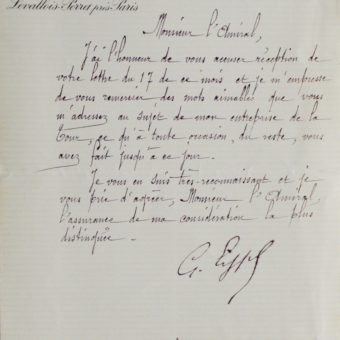 Levallois-Perret près Paris
Monsieur l'Amiral,
J'ai l'honneur de vous accuser réception de
votre lettre du 17 de ce mois et je m'empresse
de vous remercier des mots aimables que vous
m'adressez au sujet de mon entreprise de la
Tour, ce qu'à toute occasion, du reste, vous
avez fait jusqu'à ce jour.
Je vous en suis très reconnaissant et je
vous prie d'agréer, Monsieur l'Amiral,
l'assurance de ma considération la plus
distinguée.
G. Eiffel